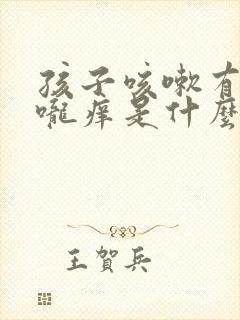 孩子咳嗽有
嚨癢是什麼
王賀兵